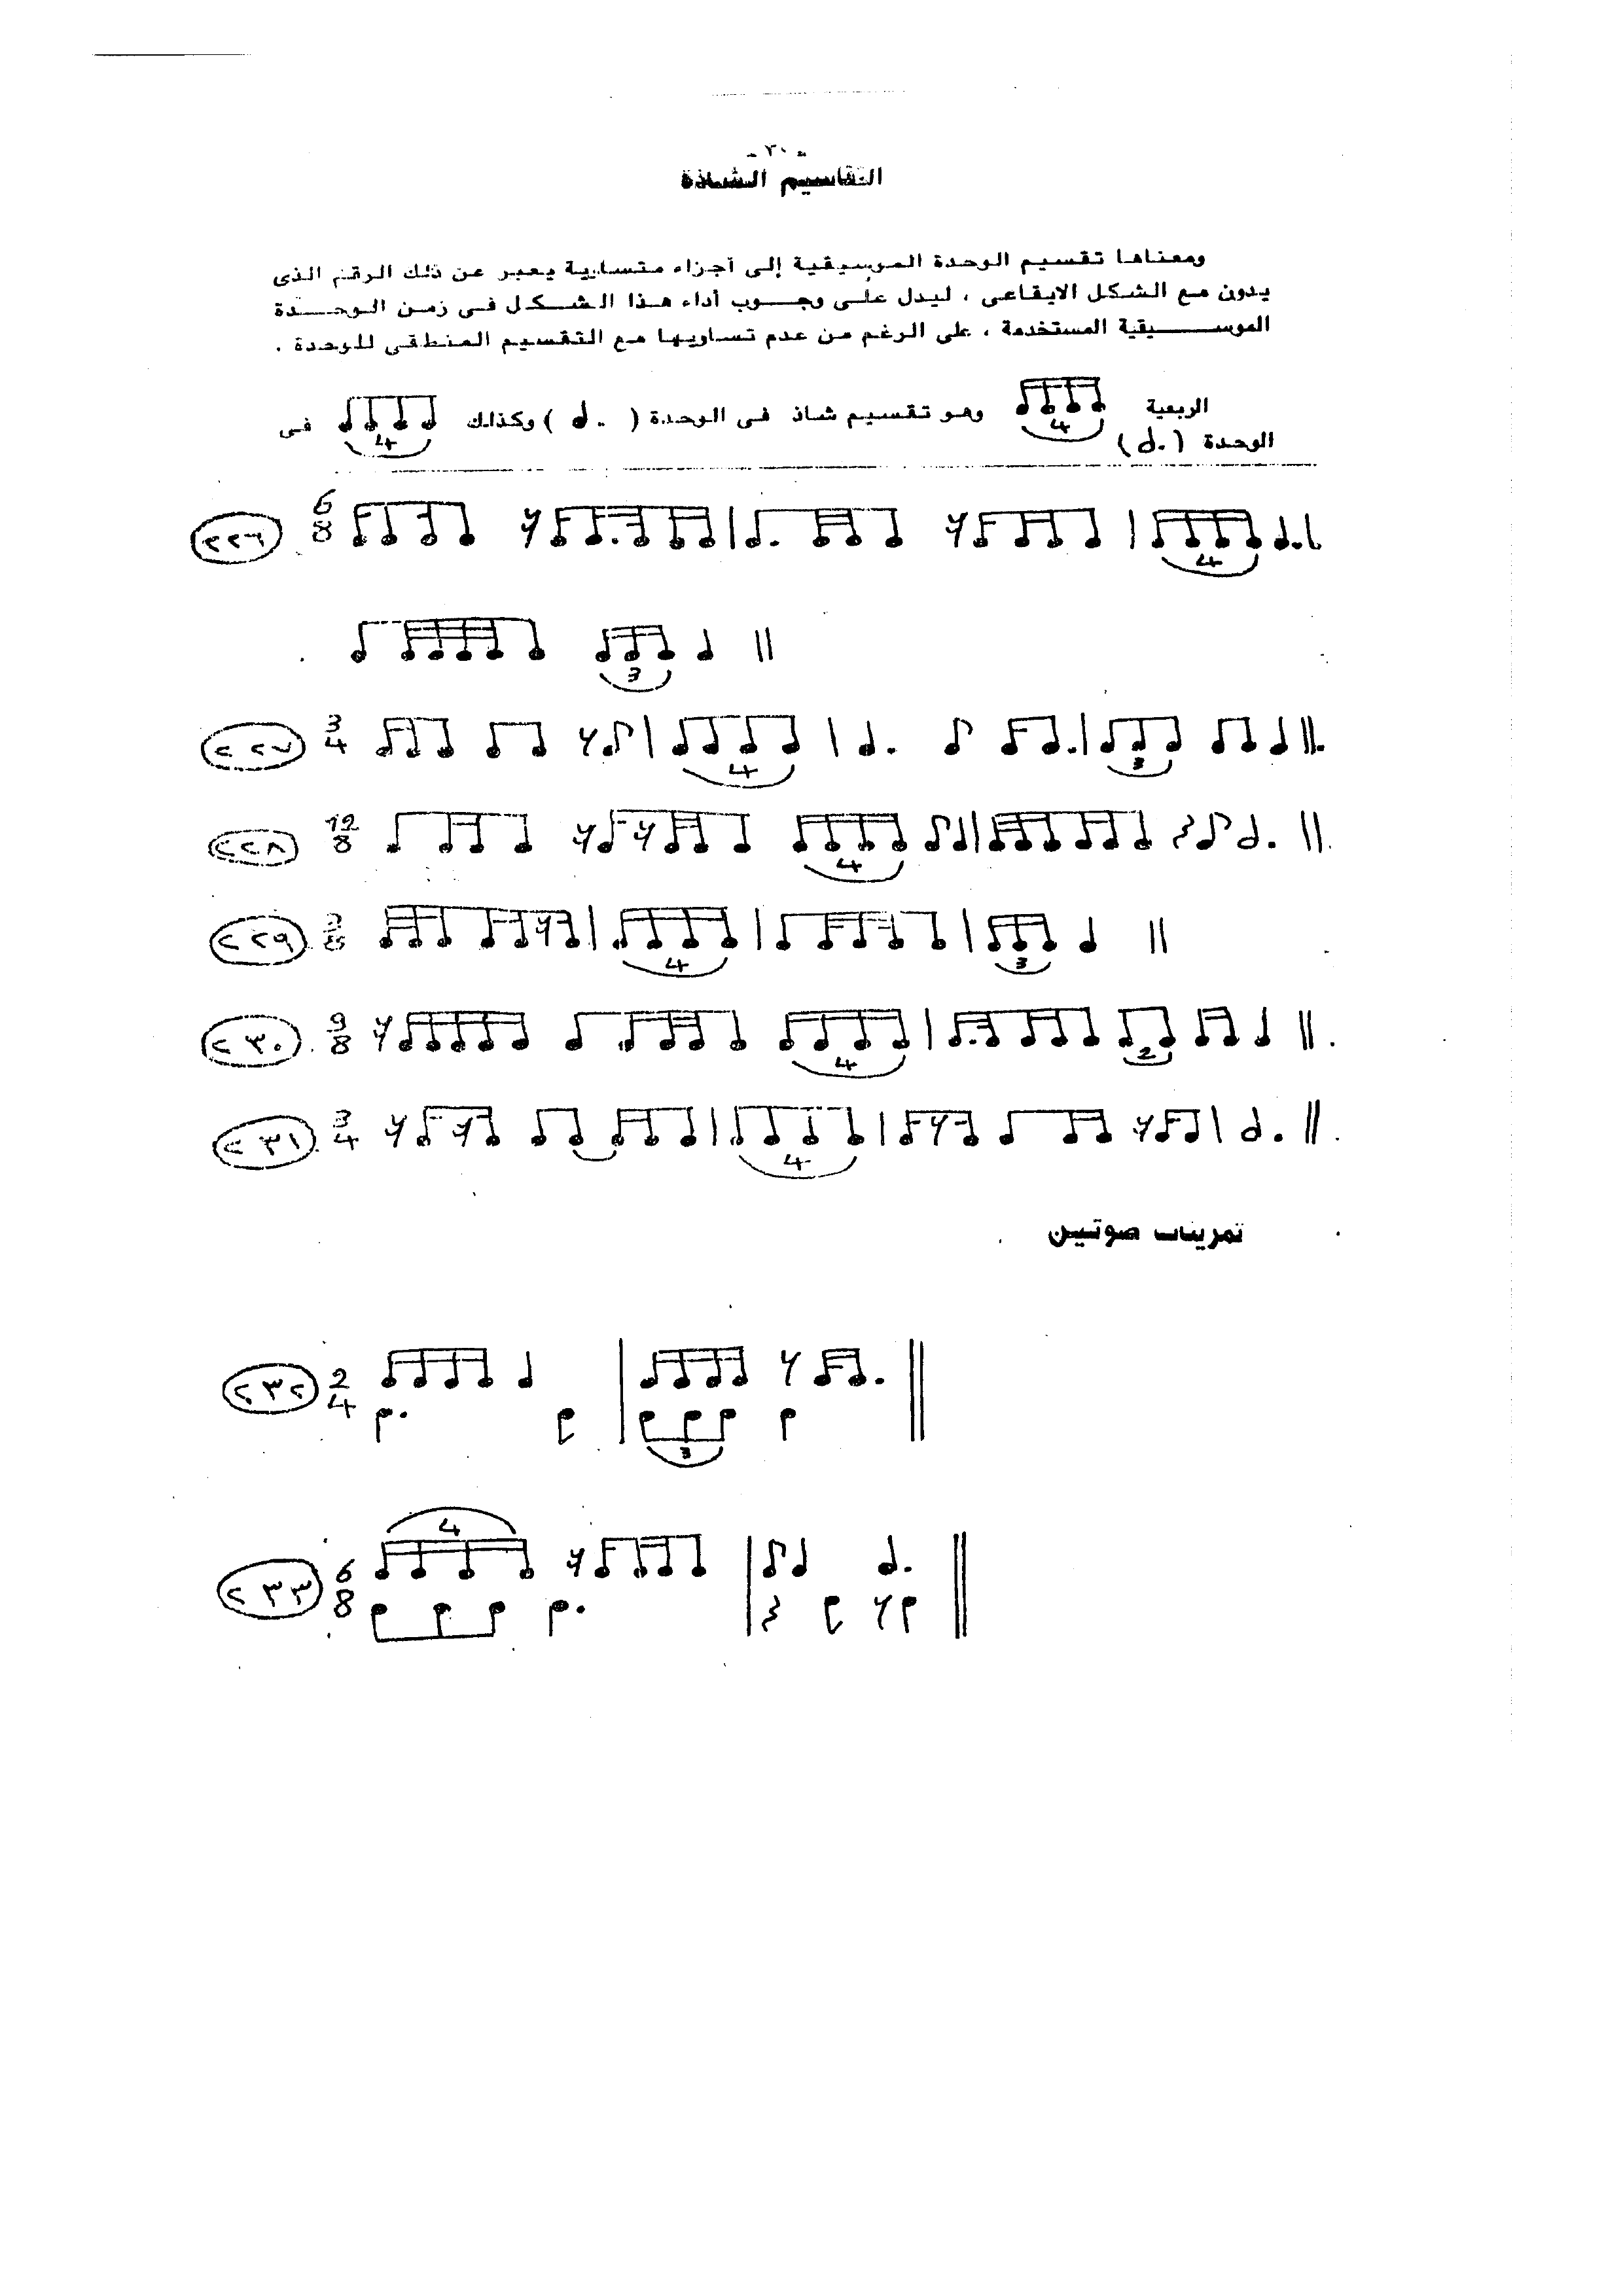 - ٣٠ -
التقاسيم الشاذة
ومعناها تقسيم الوحدة الموسيقية إلى أجزاء متساوية يعبر عن ذلك الرقم الذى
يدون مع الشكل الايقاعى ، ليدل على وجوب أداء هذا الشكل فى زمن الوحدة
الموسيقية المستخدمة ، على الرغم من عدم تساويها مع التقسيم المنطقى للوحدة .
الربعية 4 وهو تقسيم شاذ فى الوحدة ( . ) وكذلك 4 فى
الوحدة ( . )
٢٢٦ 6 8 4
3
٢٢٧ 3 4 4 3
٢٢٨ 12 8 4
٢٢٩ 3 8 4 3
٢٣٠ 9 8 4 2
٢٣١ 3 4 4
تمرينات صوتين
٢٣٢ 2 4 3
٢٣٣ 6 8 4